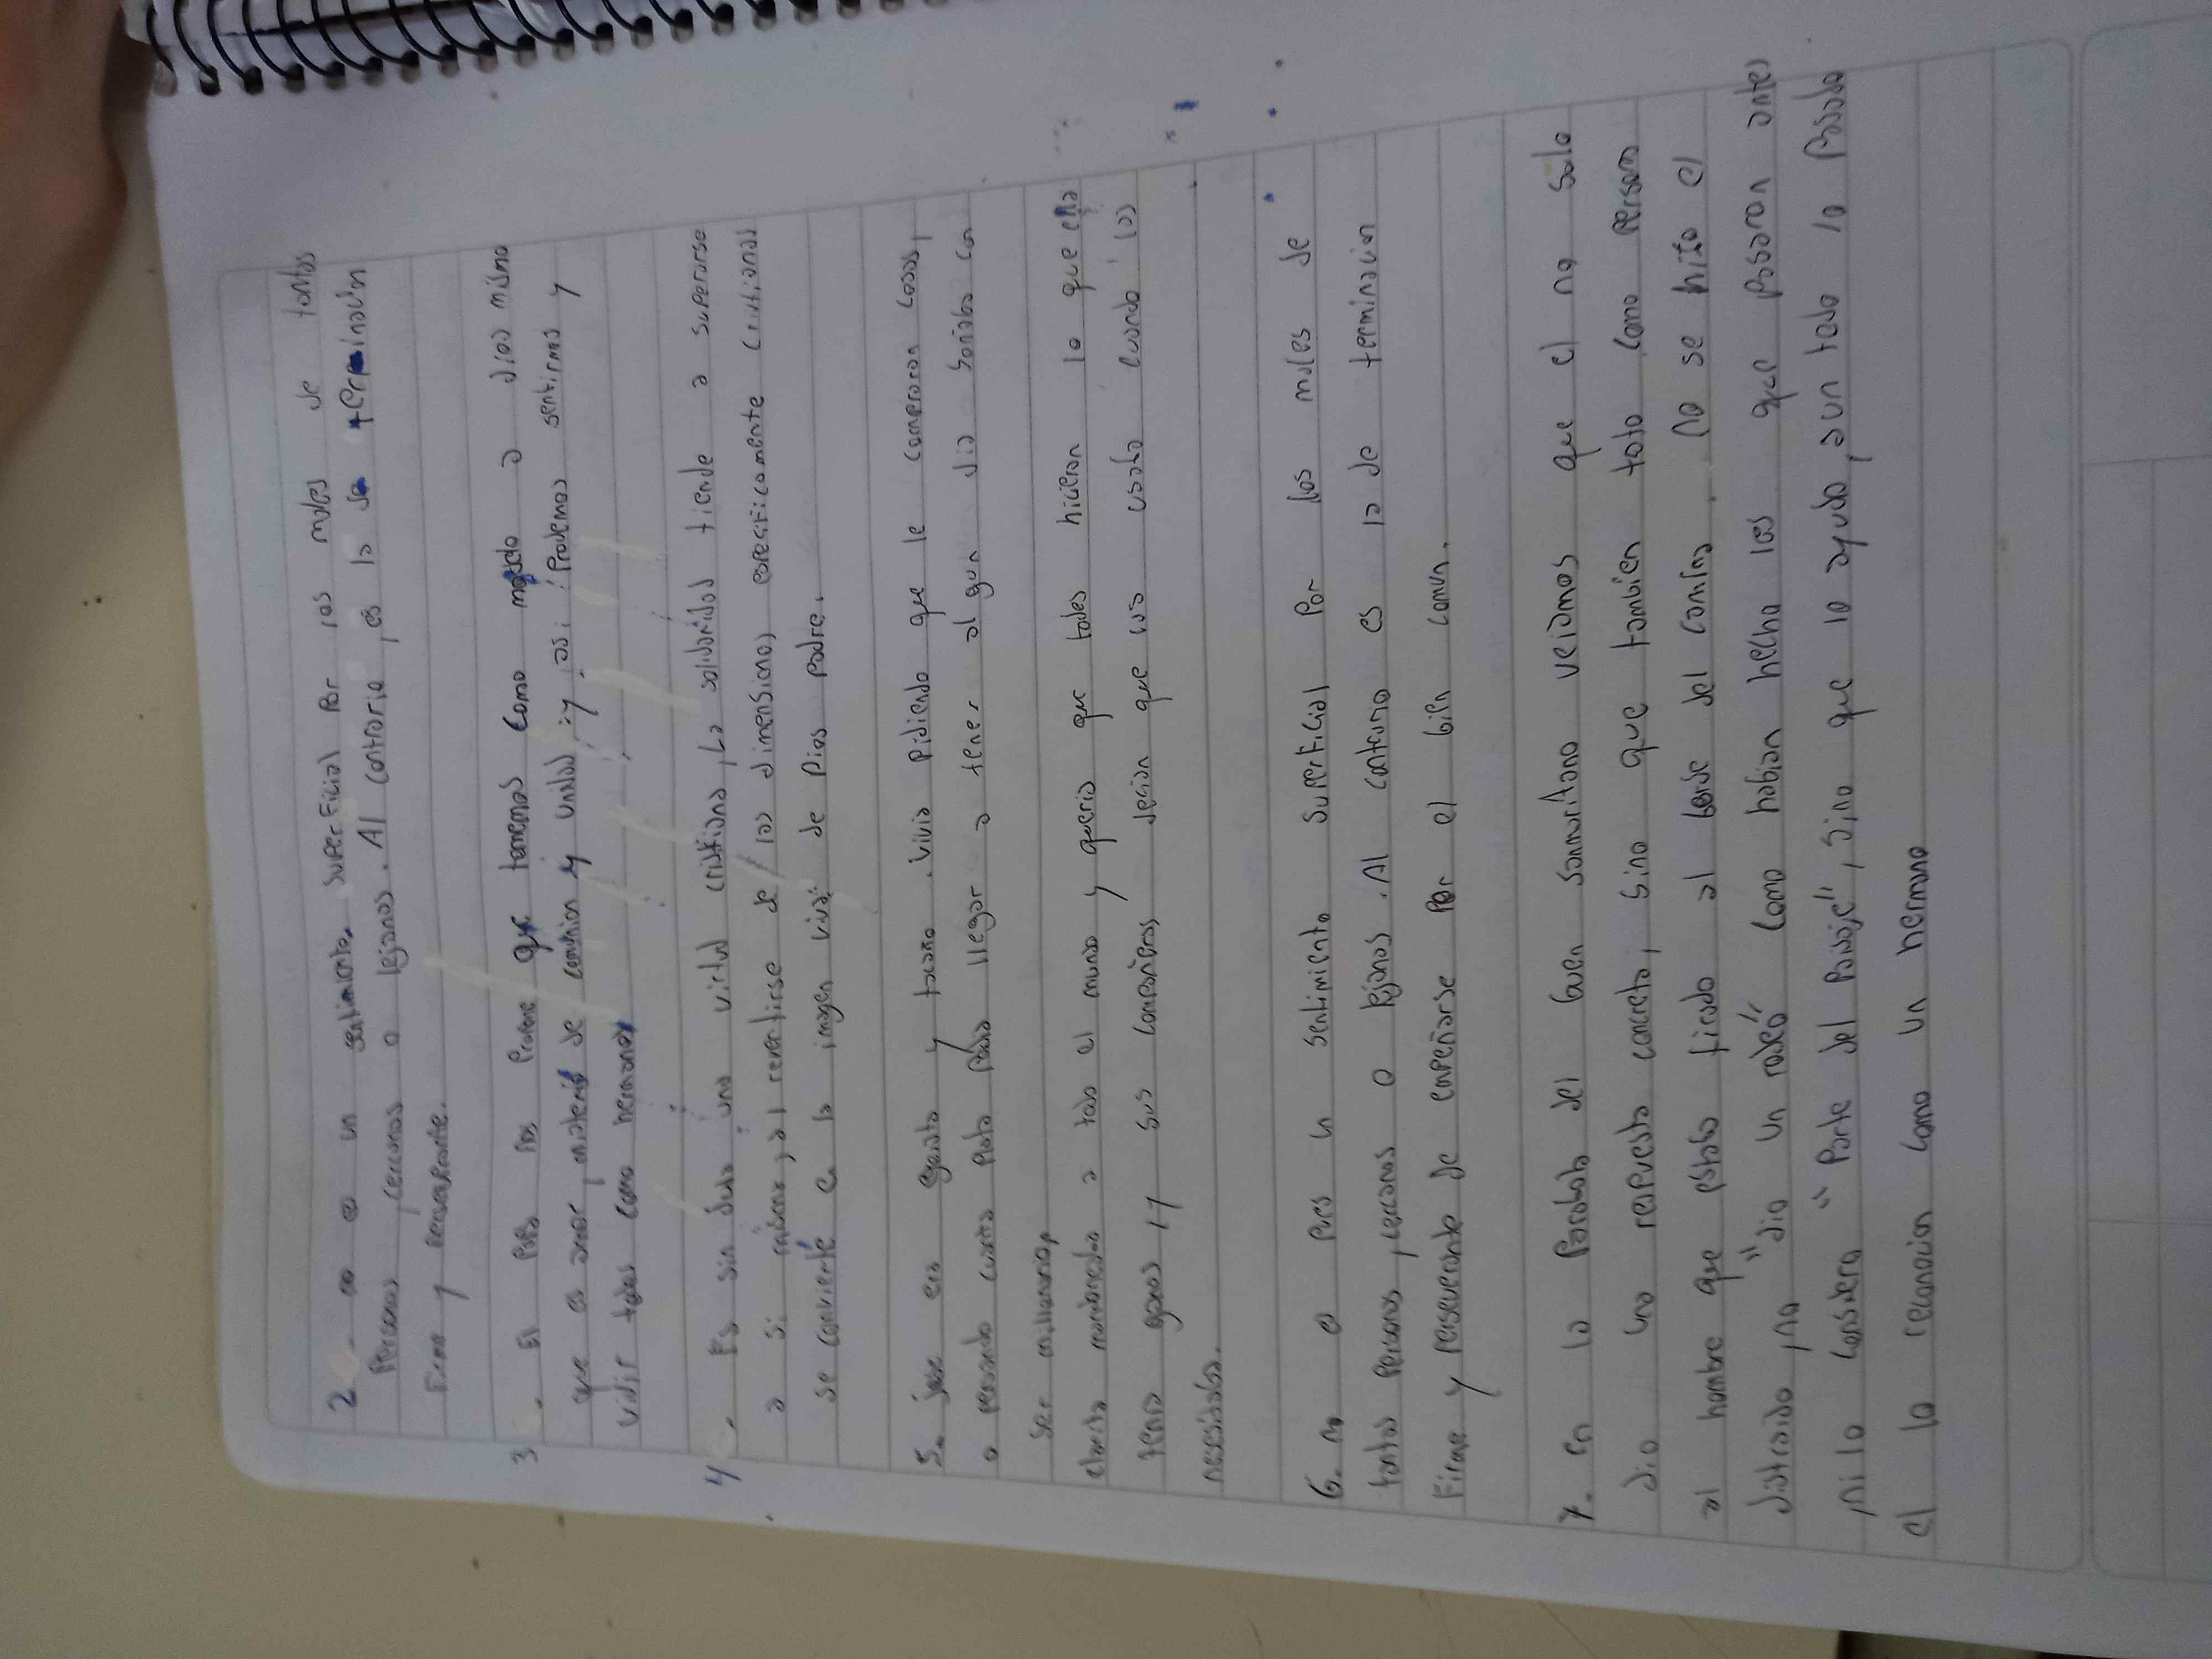 2. no es un sentimiento superficial por los males de tantas
personas, cercanas o lejanas. Al contrario, es la de terminación
Firme y perseverante.
3. El Papa nos propone que tomemos como modelo a dios mismo
que es amor, misterio de comunion y unidad, y así Prodemos sentirnos y
vivir todos como hermanos
4. Es sin duda una virtud cristiana, La solidaridad tiende a superarse
a si misma, al revertirse de las dimensiones especificamente cristianas
se convierte en la imagen viva de Dios padre.
5. Jose era egoista y tacaño. vivia pidiendo que le compraran cosas,
o pensando cuanta plata podia llegar a tener al gun dia soñaba con
ser millonario,
clarita mandoneaba a todo el mundo y queria que todos hicieran lo que ella
tenia ganas, y sus compañeros decian que los usaba cuando los
necesitaba.
6. no es pues un sentimiento superficial por los males de
tantas personas, cercanas o lejanas. Al contrario es la de terminacion
Firme y perseverante de empeñarse por el bien comun.
7. en la Parabola del buen sammaritano veiamos que el no solo
dio una respuesta concreta, sino que tambien trato como persona
al hombre que estaba tirado al borde del camino. no se hizo el
distraido, no "dio un rodeo" como habian hecho los que pasaron antes
,ni lo considero "Parte del Paisaje", sino que lo ayudo, aun todo lo pasado
el lo reconocion como un hermano